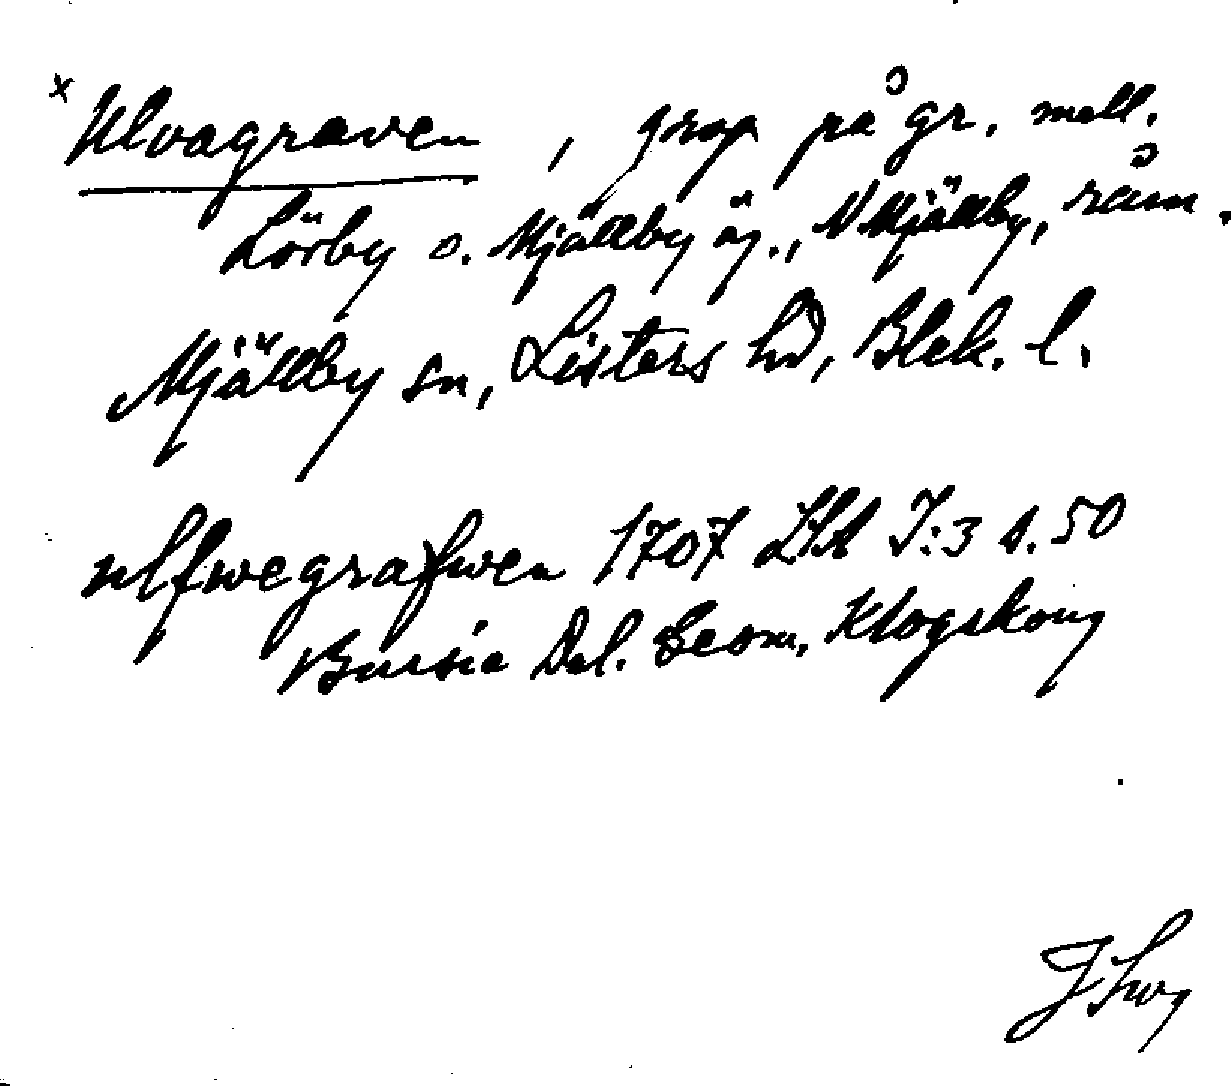 x Ulvagraven, grop på gr. mell.
Lörby o. Mjällby äg., N Mjällby, råm.
Mjällby sn, Listers hd, Blek. l.
ulfwegrafwen 1707 LSA I:3 s. 50
Bursie Del. Geom.